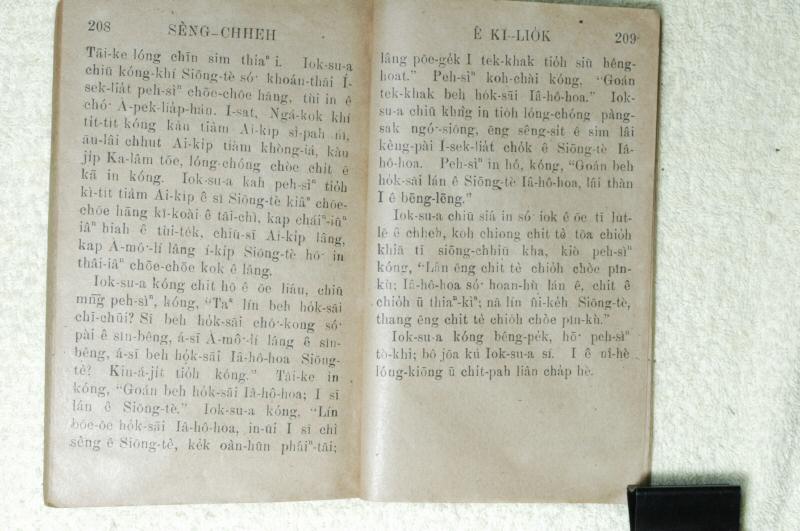 208 SÈNG-CHHEH
Tāi-ke lóng chīn sim thiaⁿ i. Iok-su-a
chiū kóng-khí Siōng-tè só͘ khoán-thāi Í-
sek-lia̍t peh-sìⁿ chōe-chōe hāng, tùi in ê
chó͘ A-pek-lia̍p-hán. I-sat, Ngá-kok khí
ti̍t-ti̍t kóng kàu tiàm Ai-ki̍p sì-pah nî,
āu-lâi chhut Ai-ki̍p tiàm khòng-iá, kàu
ji̍p Ka-lâm tōe, lóng-chóng chòe chi̍t ê
kā in kóng. Iok-su-a kah peh-sìⁿ tio̍h
kì-tit tiàm Ai-ki̍p ê sî Siōng-tè kiâⁿ chōe-
chōe hāng kî-koài ê tāi-chì, kap chháiⁿ-iūⁿ
iâⁿ hiah ê tùi-te̍k, chiū-sī Ai-ki̍p lâng,
kap A-mô͘-lī lâng í-ki̍p Siōng-tè hō͘ in
thâi-iâⁿ chōe-chōe kok ê lâng.
Iok-su-a kóng chit hō ê ōe liáu, chiū
mn̄g peh-sìⁿ, kóng, “Taⁿ lín beh ho̍k-sāi
chī-chūi? Sī beh ho̍k-sāi chó͘-kong só͘
pài ê sîn-bêng, á-sī A-mô͘-lī lâng ê sîn-
bêng, á-sī beh ho̍k-sāi Iâ-hô-hoa Siōng-
tè? Kin-á-ji̍t tio̍h kóng.” Tāi-ke in
kóng, “Goán beh ho̍k-sāi Iâ-hô-hoa; I sī
lán ê Siōng-tè.” Iok-su-a kóng, “Lín
bōe-ōe ho̍k-sāi Iâ-hô-hoa, in-ūi I sī chì
sèng ê Siōng-tè, ke̍k oàn-hūn pháiⁿ-tāi;
Ê KÌ-LIO̍K 209
lâng pōe-ge̍k I tek-khak tio̍h siū hêng-
hoat.” Peh-sìⁿ koh-chài kóng, “Goán
tek-khak beh ho̍k-sāi Iâ-hô-hoa.” Iok-
su-a chiū khǹg in tio̍h lóng-chóng pàng-
sak ngó͘-siōng, ēng sêng-sit ê sim lâi
kèng-pài Í-sek-lia̍t chok ê Siōng-tè Iâ-
hô-hoa. Peh-sìⁿ in hó, kóng, “Goán beh
ho̍k-sāi lán ê Siōng-tè Iâ-hô-hoa, lâi thàn
I ê bēng-lēng.”
Iok-su-a chiū siá in só͘ iok ê ōe tī lu̍t-
lē ê chheh, koh chiong chi̍t tè tōa chio̍h
khiā tī siōng-chhiū kha, kiò peh-sìⁿ
kóng, “Lán ēng chit tè chio̍h chòe pîn-
kù; Iâ-hô-hoa só͘ hoan-hù lán ê, chit ê
chio̍h ū thiaⁿ-kìⁿ; nā lín ûi-ke̍h Siōng-tè,
thang ēng chit tè chio̍h chòe pîn-kù.”
Iok-su-a kóng bêng-pe̍k, hō͘ peh-sìⁿ
tò-khì; bô jōa kú Iok-su-a sí. I ê nî-hè
lóng-kiōng ū chi̍t-pah liân cha̍p hè.